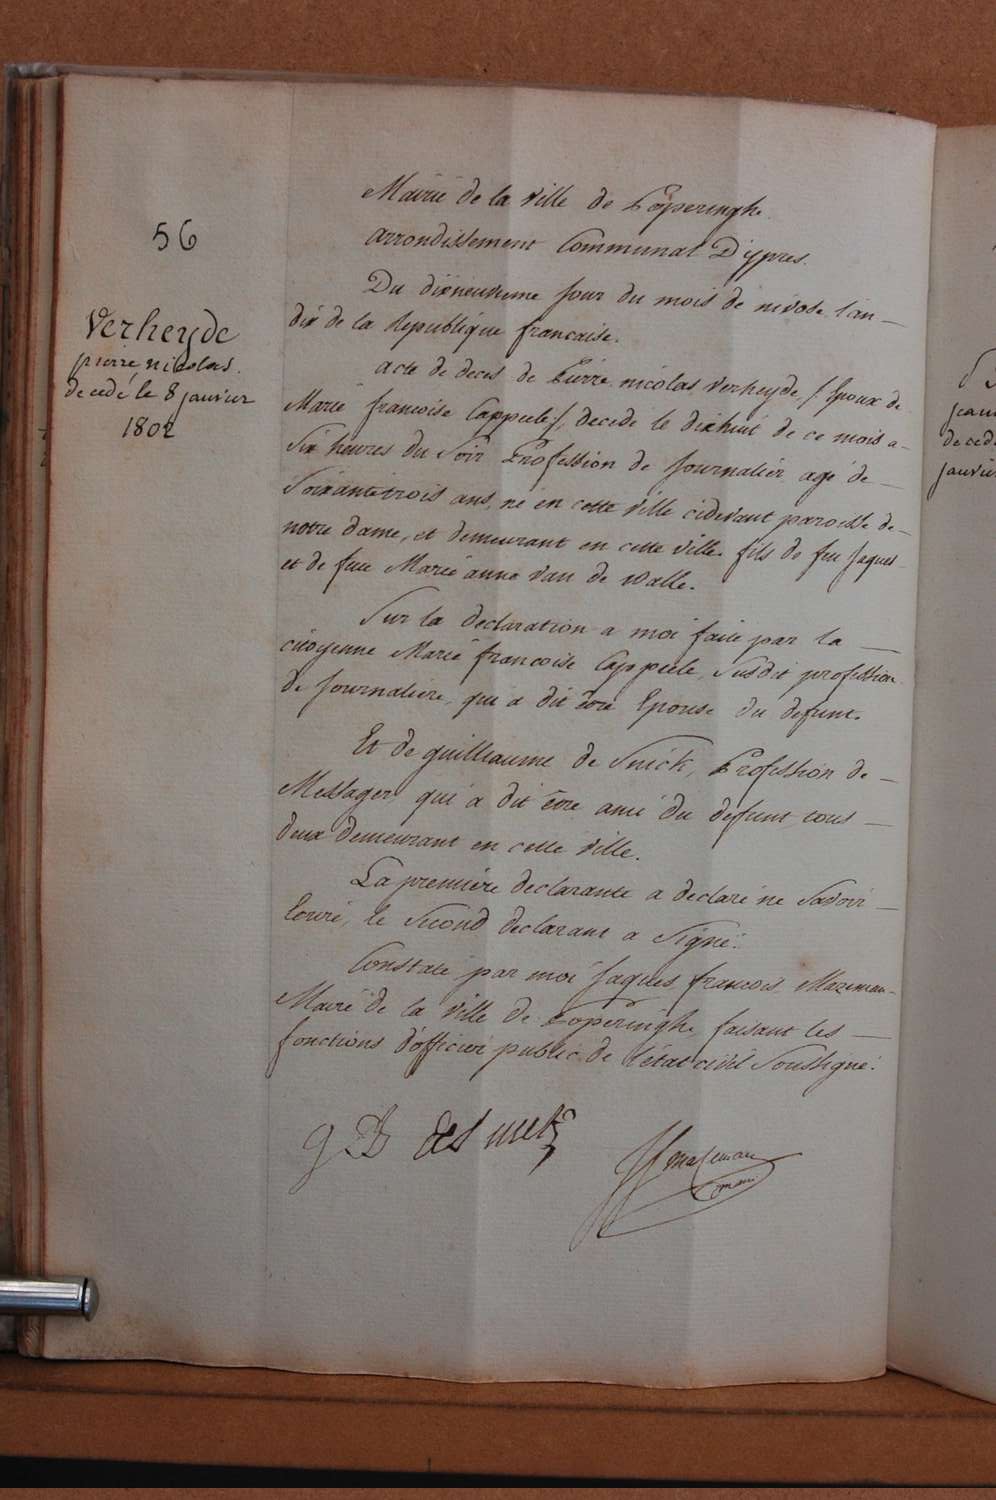 56
Verheyde
pierre nicolas.
decedé le 8 janvier
1802
Mairie de la Ville de Poperinghe
arrondissement Communal D'ypres.
Du dixneuvieme Jour du mois de nivose l'an —
dix de la Republique francaise.
acte de deces de Pierre nicolas Verheyde, / Epoux de
Marie francoise Cappeele /, decede le dixhuit de ce mois a -
Six heures du Soir Profession de Journalier agé de —
Soixantetrois ans, né en cette Ville cidevant paroisse de —
notre dame, et demeurant en cette Ville. fils de feu Jaques -
et de feue Marie anne Van de Walle.
Sur la declaration a moi faite par la —
citoyenne Marie francoise Cappeele, Susdit profession
de Journaliere, qui a dit être Epouse du defunt.
Et de guilleaume de Smick, Profession de —
Messager, qui a dit être ami du defunt, tous —
deux demeurant en cette Ville.
La première declarante a declaré ne Savoir —
Ecrire, le Second declarant a Signé.
Constaté par moi Jaques francois Mazeman -
Maire de la Ville de Poperinghe, faisant les —
fonctions d'officier public de l'état civil Soussigné.
maseman
maire
janv
de cedé
janvier